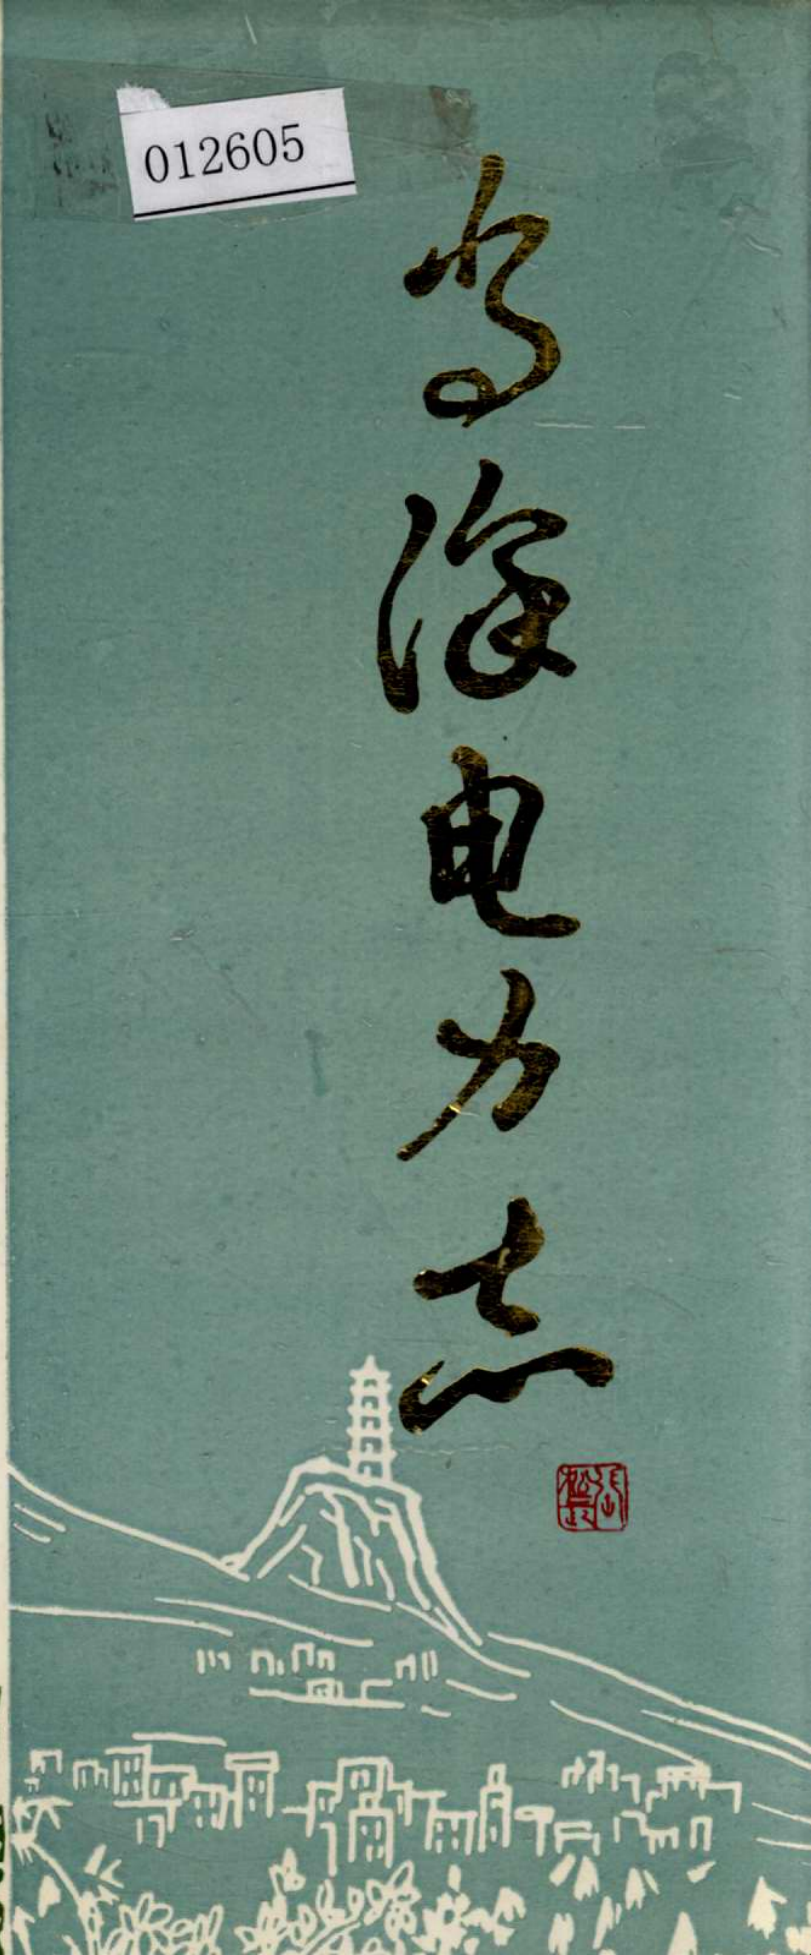 012605
当涂电力志